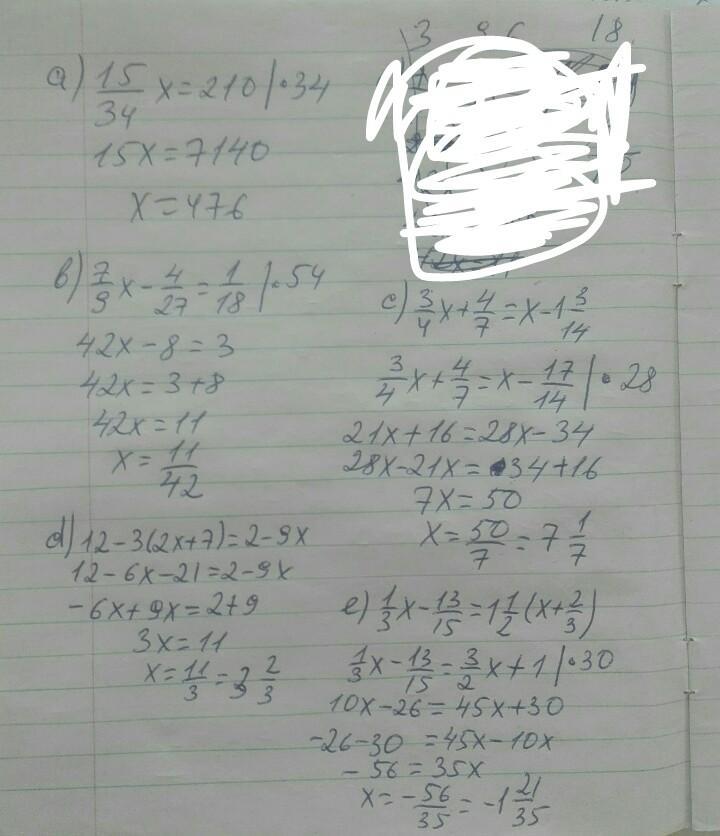 3 18
a) 15/34 x = 210 | · 34
15x = 7140
x = 476
b) 7/9 x - 4/27 = 1/18 | · 54
42x - 8 = 3
42x = 3 + 8
42x = 11
x = 11/42
c) 3/4 x + 4/7 = x - 1 3/14
3/4 x + 4/7 = x - 17/14 | · 28
21x + 16 = 28x - 34
28x - 21x = 34 + 16
7x = 50
x = 50/7 = 7 1/7
d) 12 - 3(2x + 7) = 2 - 9x
12 - 6x - 21 = 2 - 9x
-6x + 9x = 2 + 9
3x = 11
x = 11/3 = 3 2/3
e) 1/3 x - 13/15 = 1 1/2 (x + 2/3)
1/3 x - 13/15 = 3/2 x + 1 | · 30
10x - 26 = 45x + 30
-26 - 30 = 45x - 10x
-56 = 35x
x = -56/35 = -1 21/35